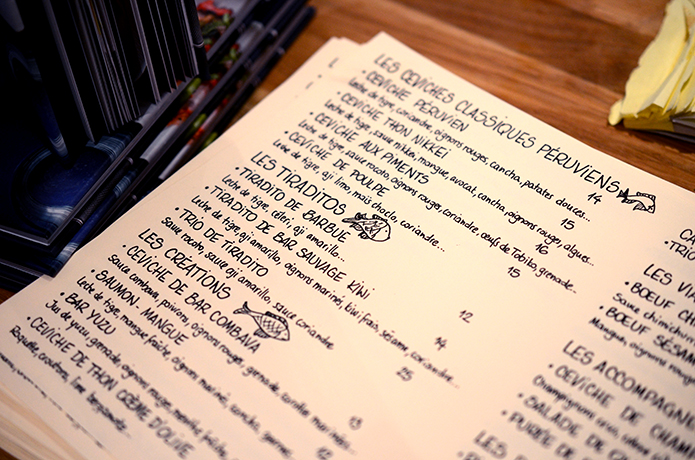 LES CEVICHES CLASSIQUES PÉRUVIENS
• CEVICHE PÉRUVIEN
Leche de tigre, coriandre, oignons rouges, cancha, patates douces... 14
• CEVICHE THON NIKKEI
Leche de tigre, sauce nikkei, mangue, avocat, cancha, oignons rouges, algues... 15
• CEVICHE AUX PIMENTS
Leche de tigre, sauce rocoto, oignons rouges, coriandre, oeufs de Tobiko, grenade... 16
• CEVICHE DE POULPE
Leche de tigre, aji limo, mais choclo, coriandre... 15
LES TIRADITOS
• TIRADITO DE BARBUE
Leche de tigre, celeri, aji amarillo... 12
• TIRADITO DE BAR SAUVAGE KIWI
Leche de tigre, aji amarillo, oignons marinés, kiwi frais, sésame, coriandre... 14
• TRIO DE TIRADITO
Sauce rocoto, sauce aji amarillo, sauce coriandre 25
LES CRÉATIONS
• CEVICHE DE BAR COMBAVA
Sauce combava, poivrons, oignons rouges, grenade,
• SAUMON - MANGUE
Leche de tigre, mangue fraîche, oignons marinés, cancha, 13
• BAR YUZU
Jus de yuzu, grenade, oignons rouges, menthe fraîche, 12
• CEVICHE DE THON CRÈME D'OLIVE
Roquette, croutons,
• TRIO
LES
• BOEUF
Sauce chimichurri
• BOEUF SÉSAM
Mangue, oignons rouges
LES ACCOMPAGNE
• CEVICHE DE CHAM
Champignons crus,
• SALADE DE
• PURÉE DE
LES